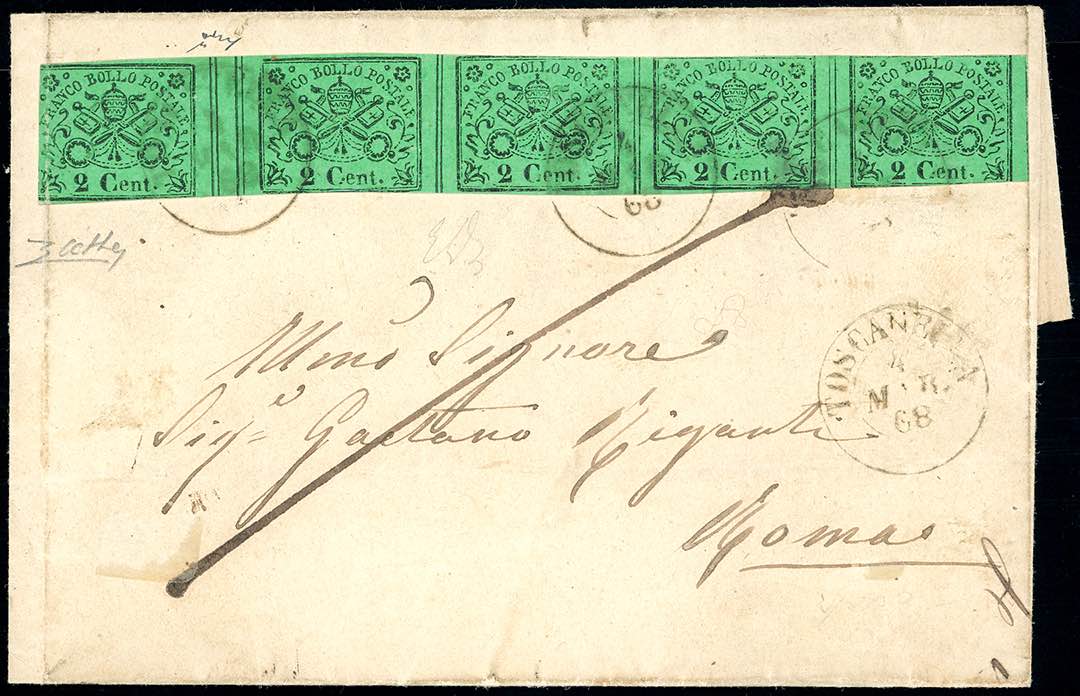 FRANCO BOLLO POSTALE FRANCO BOLLO POSTALE FRANCO BOLLO POSTALE FRANCO BOLLO POSTALE FRANCO BOLLO POSTALE
2 Cent. 2 Cent. 2 Cent. 2 Cent. 2 Cent.
68
Illmo Signore
TOSCANELLA
MAR.
68
Sigr Gaetano Riganti
Roma